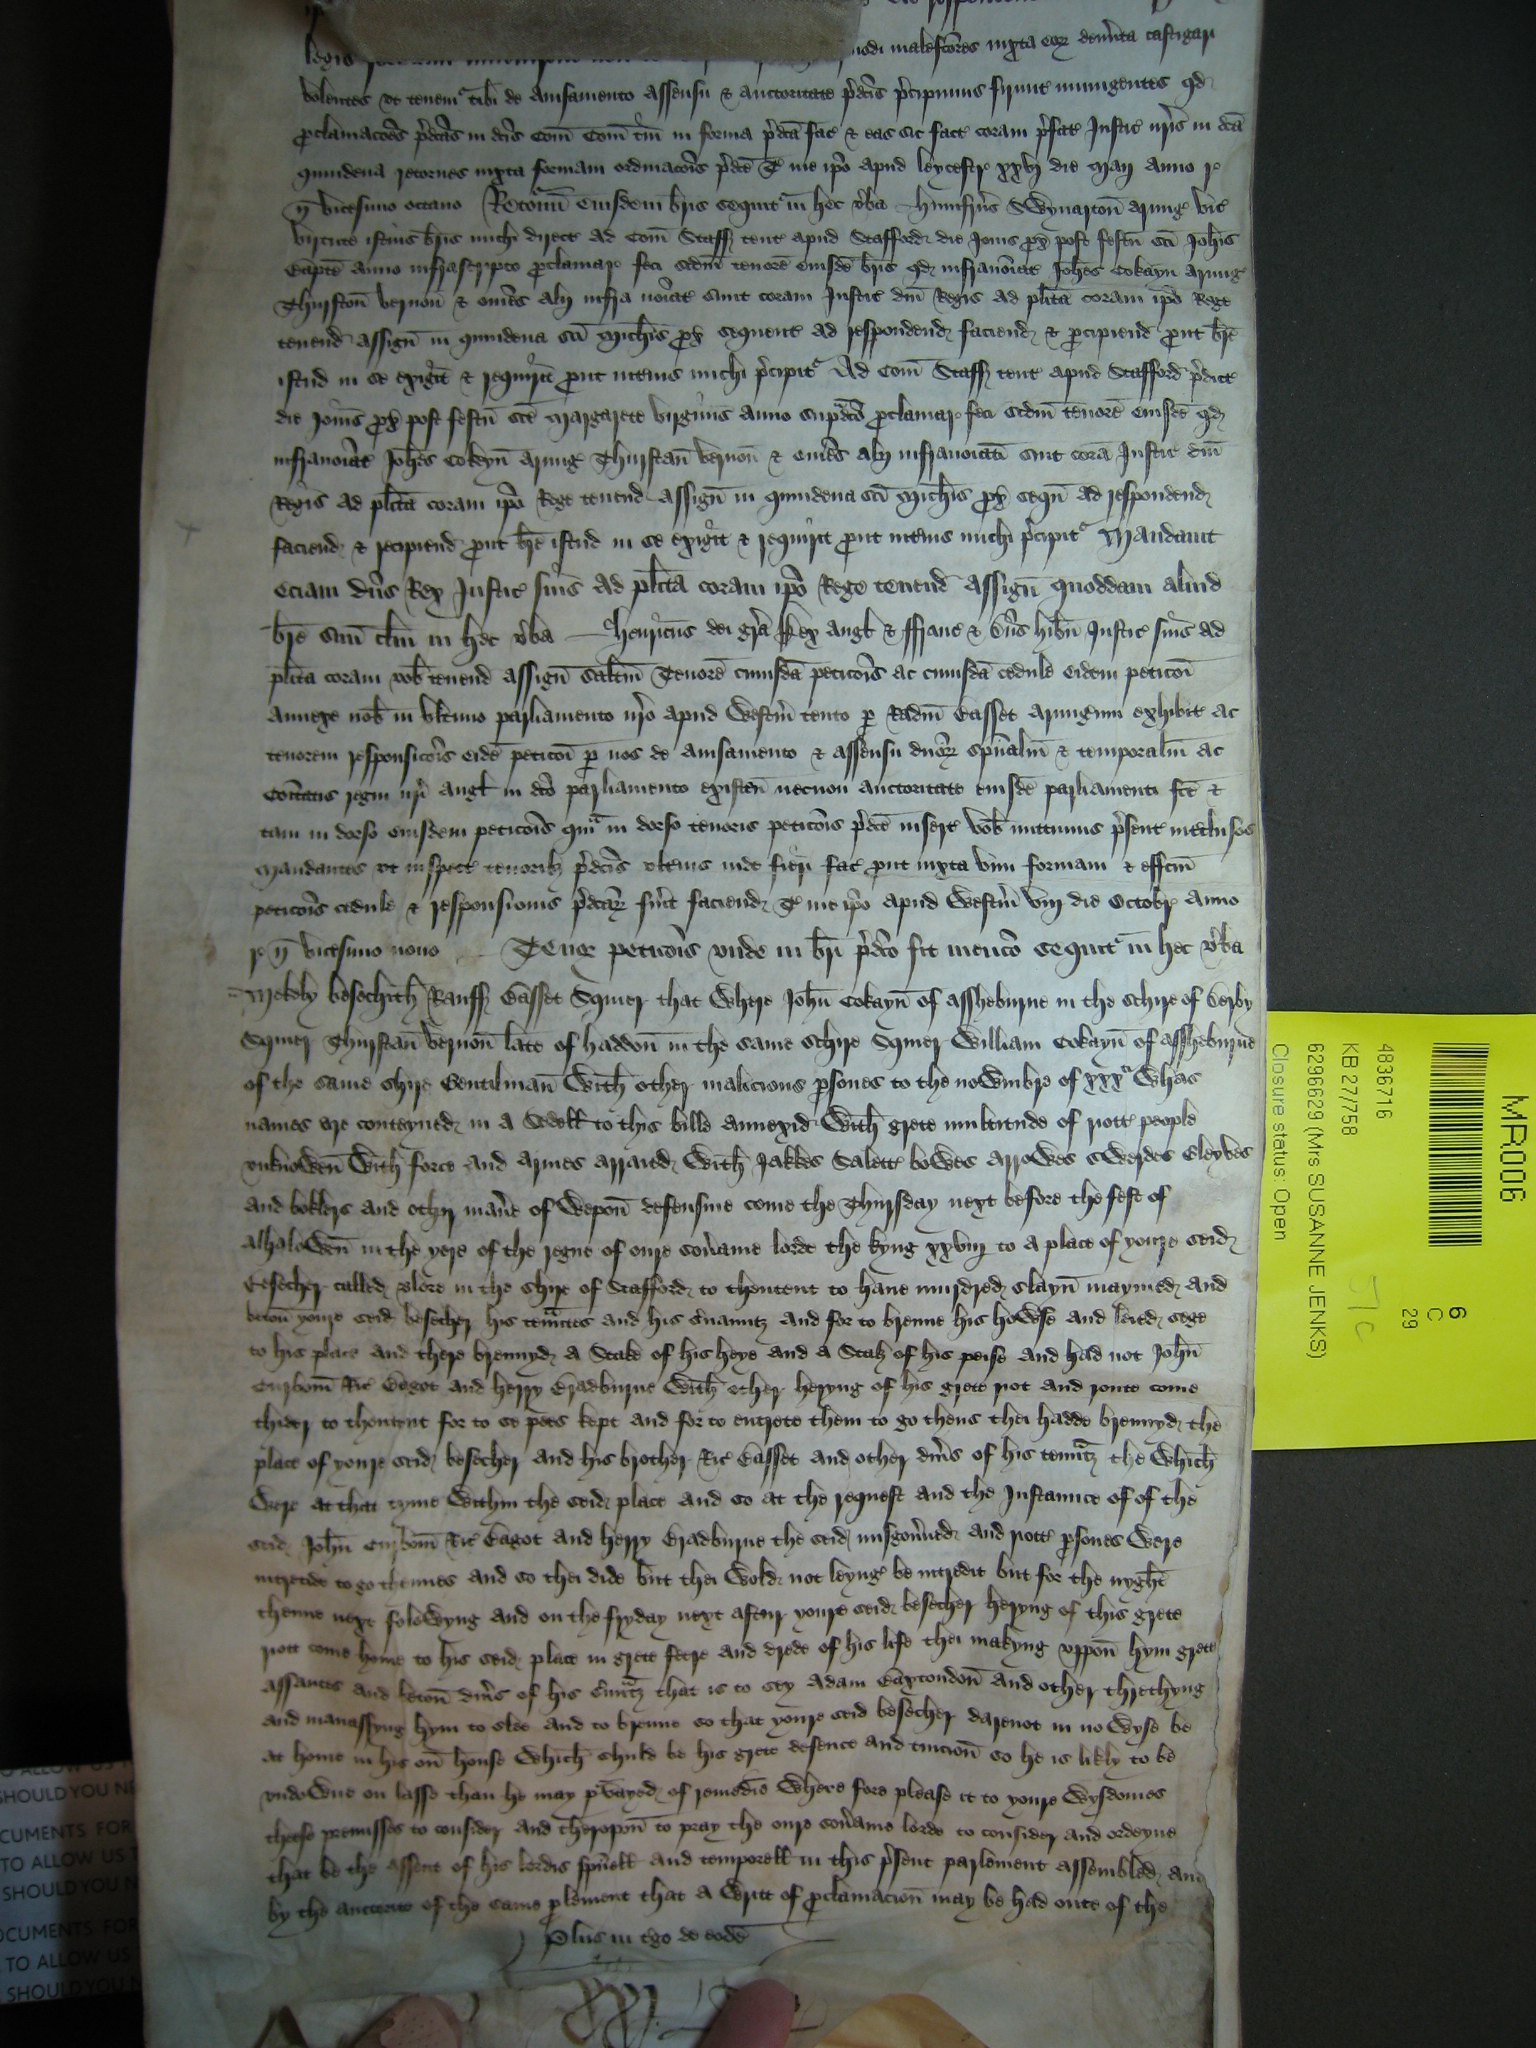 modi malefcores iuxta eor demerita castigari
volentes vt tenemr tibi de Avisamento Assensu & auctoritate pdcis pcipimus firmit iniungentes qd
proclamacoes pdcas in dcis Com Com tm in forma pdca fac & eas sic fact coram pfat Justic nris in dca
quindena retornes iuxta formam ordinacois pdce T me ipo apud leycestr xxvj die Maij anno r
n vicesimo octavo Retornu eiusdem bris sequitr in hec vba Humfrus Swynarton armigr vic
virtute istius bris michi direct Ad Com Staff tent apud Stafford die Jovis prox post festu sci Johis
Bapte anno infrascripto proclamar feci scdm tenore eiusde bris qd infranoiat Johes Cokayn armigr
Thurston Vernon & omes alij infra noiat sint coram Justic dni Regis ad plita coram ipo Rege
tenend assign in quindena sci Michis prox sequent ad respondend faciend & pcipiend prout bre
istud in se exigit & requirit prout interius michi pcipitr Ad Com Staff tent apud Stafford pdict
die Jovis prox post festu sce Margarete virginis anno supdco proclamar feci scdm tenore eiusde qd
infranoiat Johes Cokayn armigr Thurstan Vernon & omes alij infranoiati sint cora Justic dni
Regis ad plita coram ipo Rege tenend assign in quindena sci Michis prox sequ ad respondend
faciend & recipiend prout bre istud in se exigit & requirit prout interius michi pcipitr Mandavit
eciam dns Rex Justic suis ad plita coram ipo Rege tenend assign quoddam aliud
bre suu clm in hec vba Henricus dei gra Rex Angl & ffranc & dns hibn Justic suis ad
plita coram nob tenend assign saltm Tenore cuiusda peticois ac cuiusda cedule eidem peticoi
annexe nob in vltimo parliamento nro apud Westm tento p Radm Basset Armigum exhibit ac
tenorem responsiois eide peticoi p nos de avisamento & assensu dnor spualiu & temporaliu ac
Coitatis regni nri Angl in dco parliamento existen necnon auctoritate eiusde parliamenti fce &
tam in dorso eiusdem peticois qm in dorso tenoris peticois pdce insert vob mittimus psent interclusos
Mandantes vt inspect tenorib pdcis vlterius inde fieri fac prout iuxta vim formam & effcm
peticois cedule & responsionis pdcar fuit faciend T me ipo apud Westm viij die Octobr Anno
r n vicesimo nono Tenor peticois vnde in bri pdco fit mencio sequitr in hec vba
Mekely besechith Rauff Basset Squier that where John Cokayn of assheburne in the schire of Derby
Squier Thurstan Vernon late of haddon in the same schire Squier William Cokayn of assheburne
of the same shire Gentilman With other malicious psones to the nowmbre of xxxti Whas
names are conteyned in a Sedell to this bille annexid With grete multitude of riott people
vnknowen With force and armes arraied With Jakkes Salett bowes arrowes swerdes Gleyves
and boklers and othir manre of Wepon defensive come the Thursday next before the fest of
Alhalowen in the yere of the regne of oure sovrane lorde the kyng xxviij to a place of youre seid
besecher called Blore in the shire of Stafford to thentent to have murdred slayn maymed and
beton youre seid besecher his tenntes and his svauntz and for to brenne his howse and leied sege
to his place and there brennyd a Stake of his heye and a Stak of his peise and had not John
Curson Ric Bagot and herry Bradburne With other heryng of his grete riot and route come
thider to thentent for to se pees kept and for to entrete them to go thens thei hadde brennyd the
place of youre seid besecher and his brother Ric Basset and other divrs of his tenntz the Which
Were at that tyme Within the seid place and so at the request and the Instaunce of of the
seid John Curson Ric Bagot and herry Bradburne the seid misgovrned and riott psones were
intretide to go thennes and so thei dide but thei Wold not lengr be intredit but for the nyght
thenne next folowyng and on the fryday next aftur youre seid besecher heryng of this grete
riott come home to his seid place in grett feere and drede of his life thei makyng vppon hym grete
assautes and beton divrs of his svuntz that is to sey Adam and other threthyng
and manassyng hym to slee and to brenne so that youre seid besecher darenot in no wyse be
at home in his on house Which shuld be his grete defence and tuicion so he is likly to be
vndowne on lasse than he may pvayed of remedie Where fore please it to youre Wysdomes
theese premisses to consider and therupon to pray the oure sovrane lorde to consider and ordeyne
that be the assent of his lordis spuell and temporell in this psent parlement assembled and
by the auctorite of the same plement that a Writt of proclamacion may be had oute of the
Plus in tgo de eode
MR006
4836716
KB 27/758
6296629 (Mrs SUSANNE JENKS)
Closure status: Open
6
C
29
51c